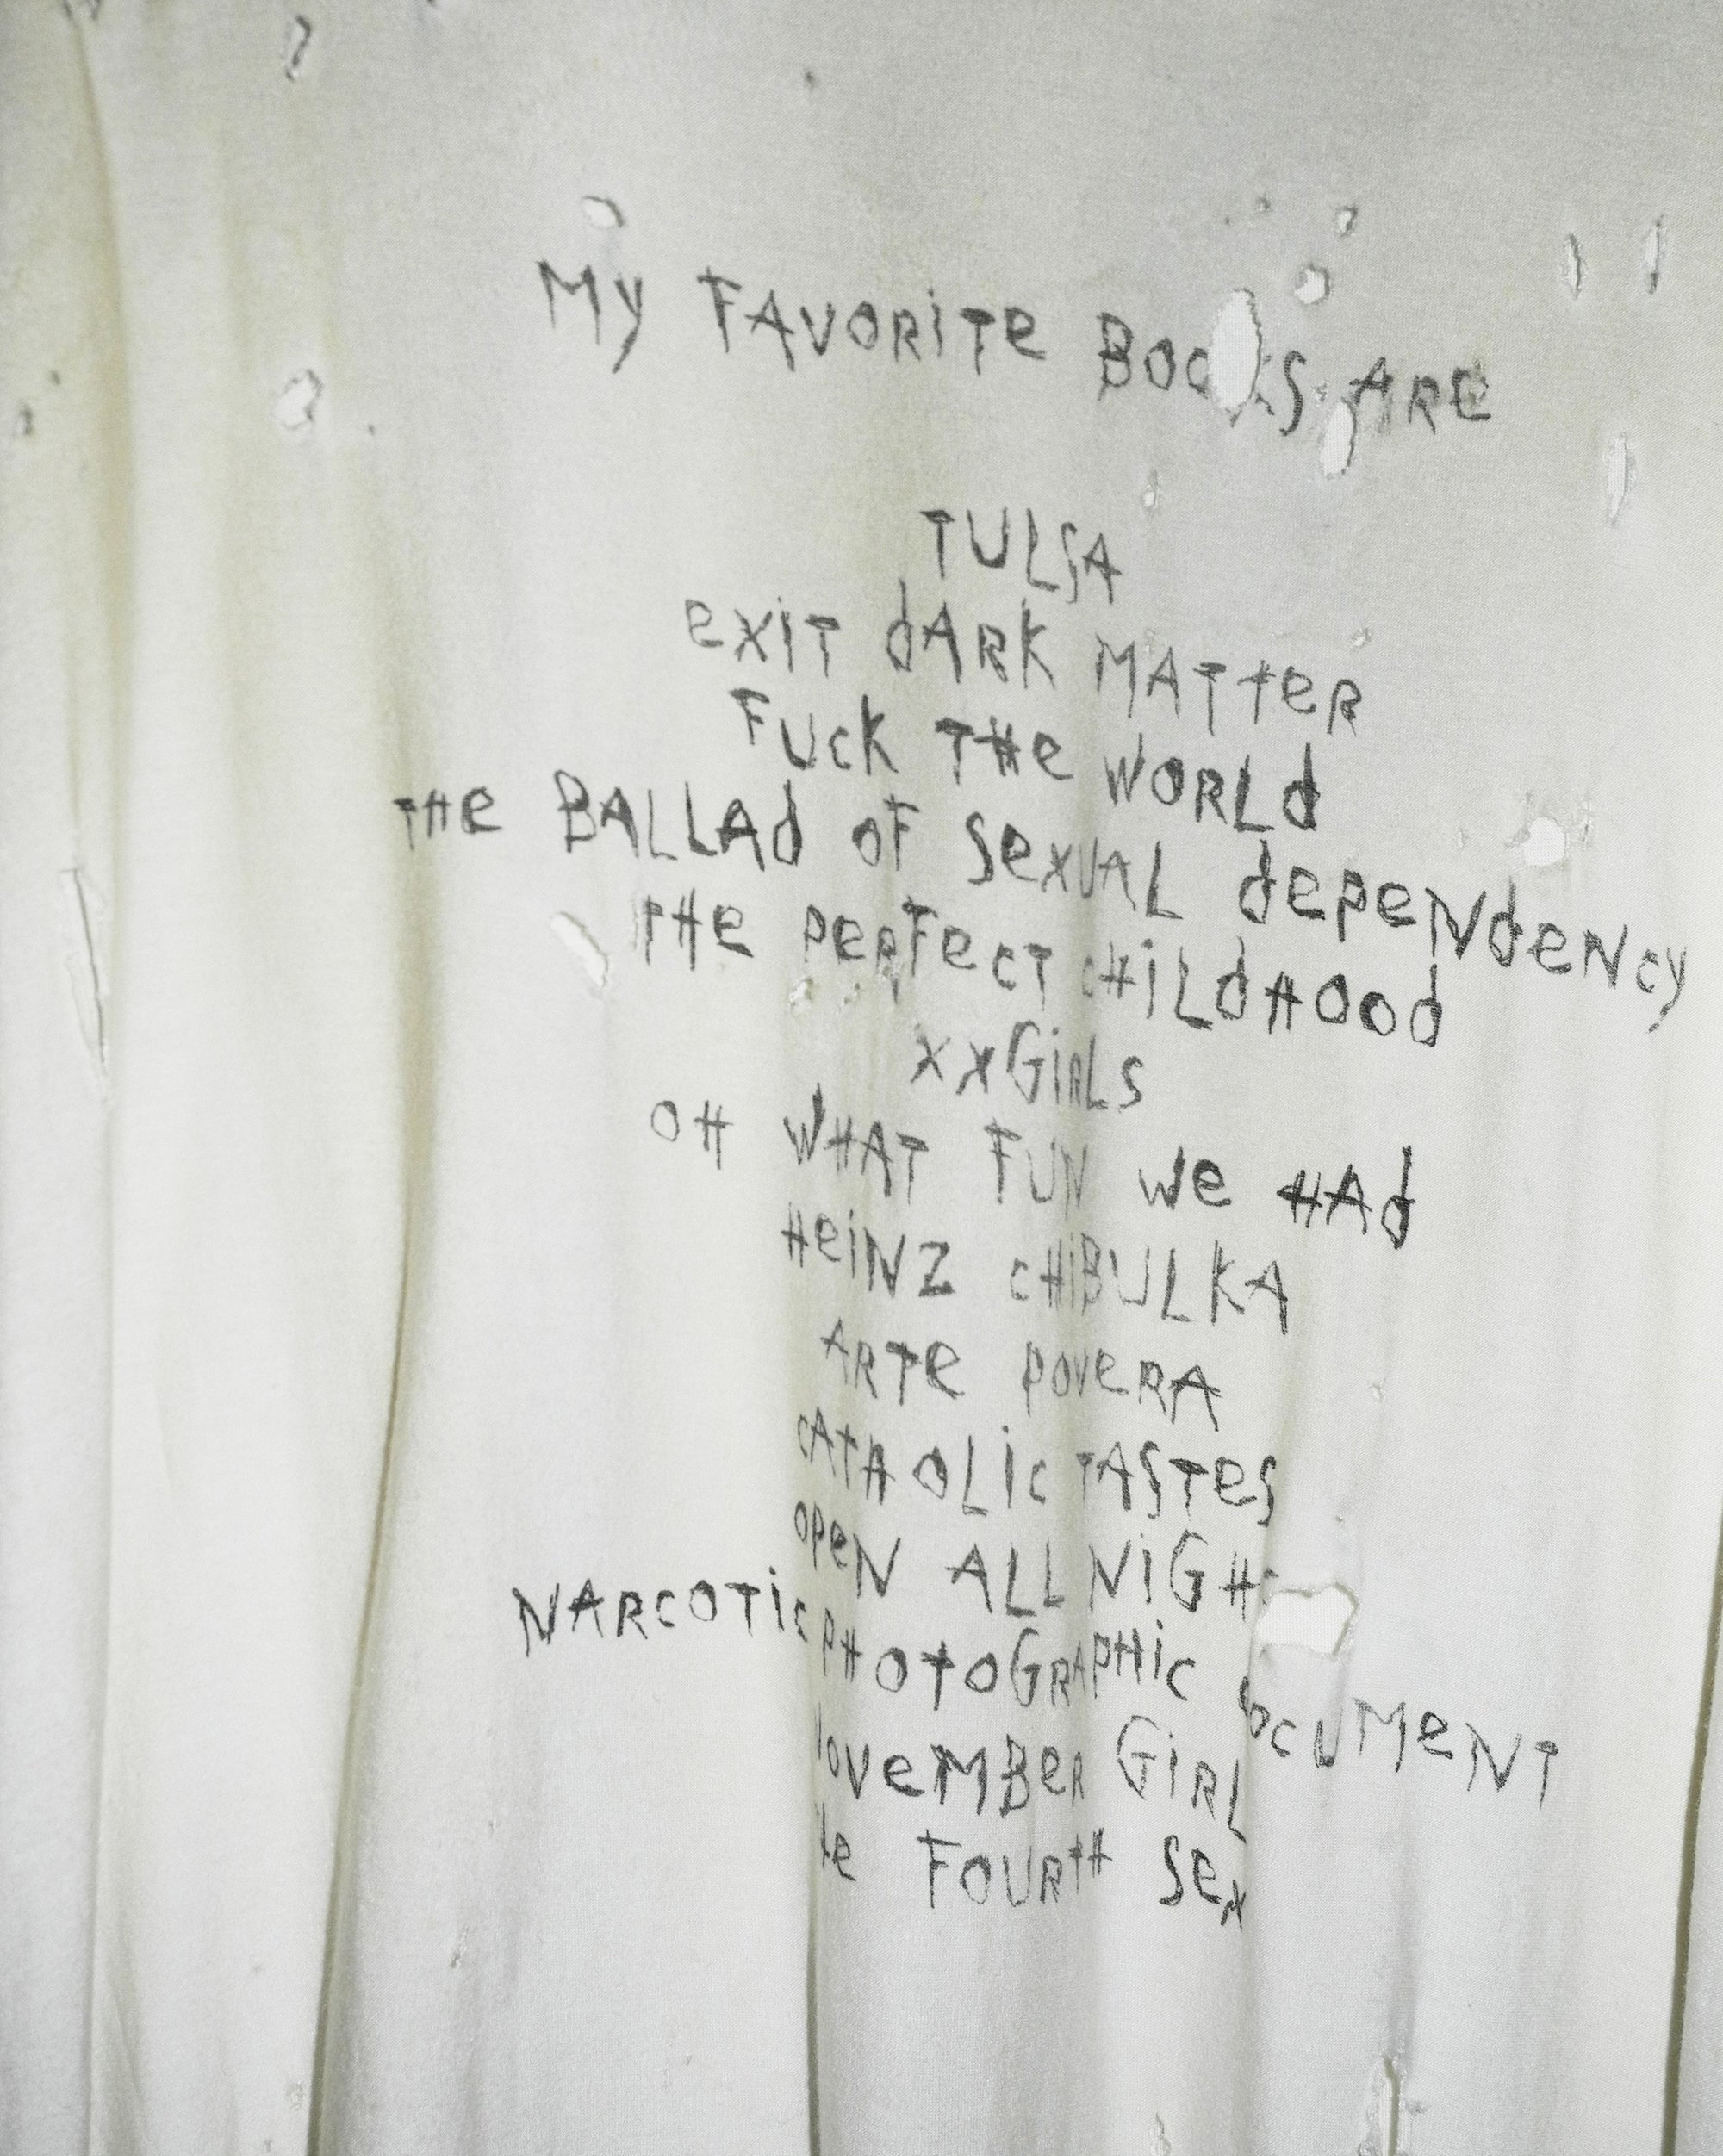 My FAVORiTe BOOKS ARE
TULSA
exiT dARK MATTeR
FUcK THe WORLd
THe BALLAd OF SexUAL dePeNdeNcy
THe PeRFecT cHiLdHOOd
xxGiRLS
OH WHAT FUN We HAd
HeiNZ cHiBULKA
ARTe POVeRA
cATHOLic TASTeS
OPeN ALL NiGHT
NARcOTic PHOTOGRAPHic dOcUMeNT
NOVeMBeR GiRL
FOURTH Sex